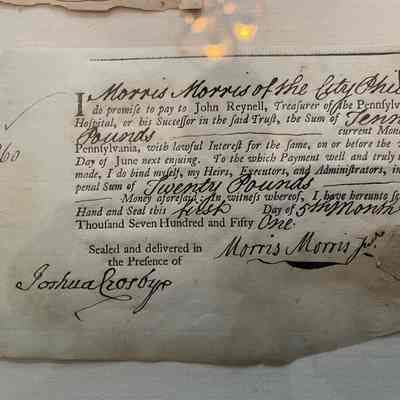 I Morris Morris of the City Phil
do promise to pay to John Reynell, Treasurer of the Pennsylv
Hospital, or his Successor in the said Trust, the Sum of Tenn
Pounds current Mon
Pennsylvania, with lawful Interest for the same, on or before the
Day of June next ensuing. To the which Payment well and truly
made, I do bind myself, my Heirs, Executors, and Administrators, in
penal Sum of Twenty Pounds
Money aforesaid. In witness whereof, I have hereunto s
Hand and Seal this first Day of 5th Month
Thousand Seven Hundred and Fifty One.
Sealed and delivered in
the Presence of
Morris Morris Jr.
Joshua Crosby